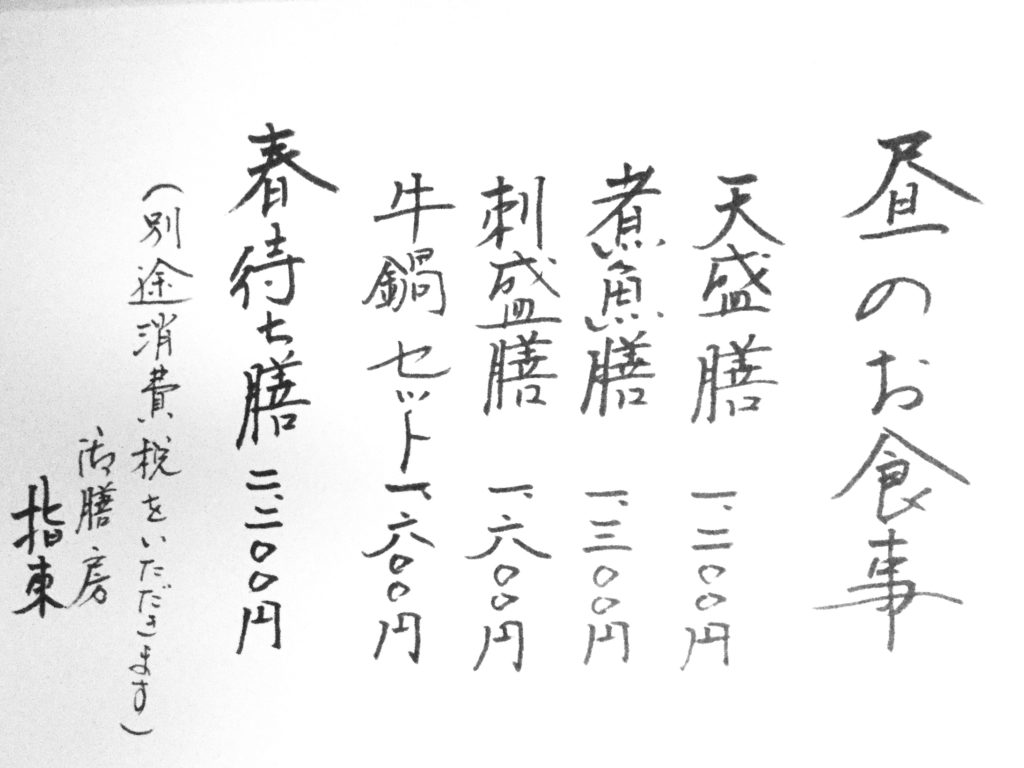 昼のお食事
天盛膳 一、二〇〇円
煮魚膳 一、三〇〇円
刺盛膳 一、六〇〇円
牛鍋セット 一、六〇〇円
春待ち膳 二、二〇〇円
(別途消費税をいただきます)
御膳房
指東